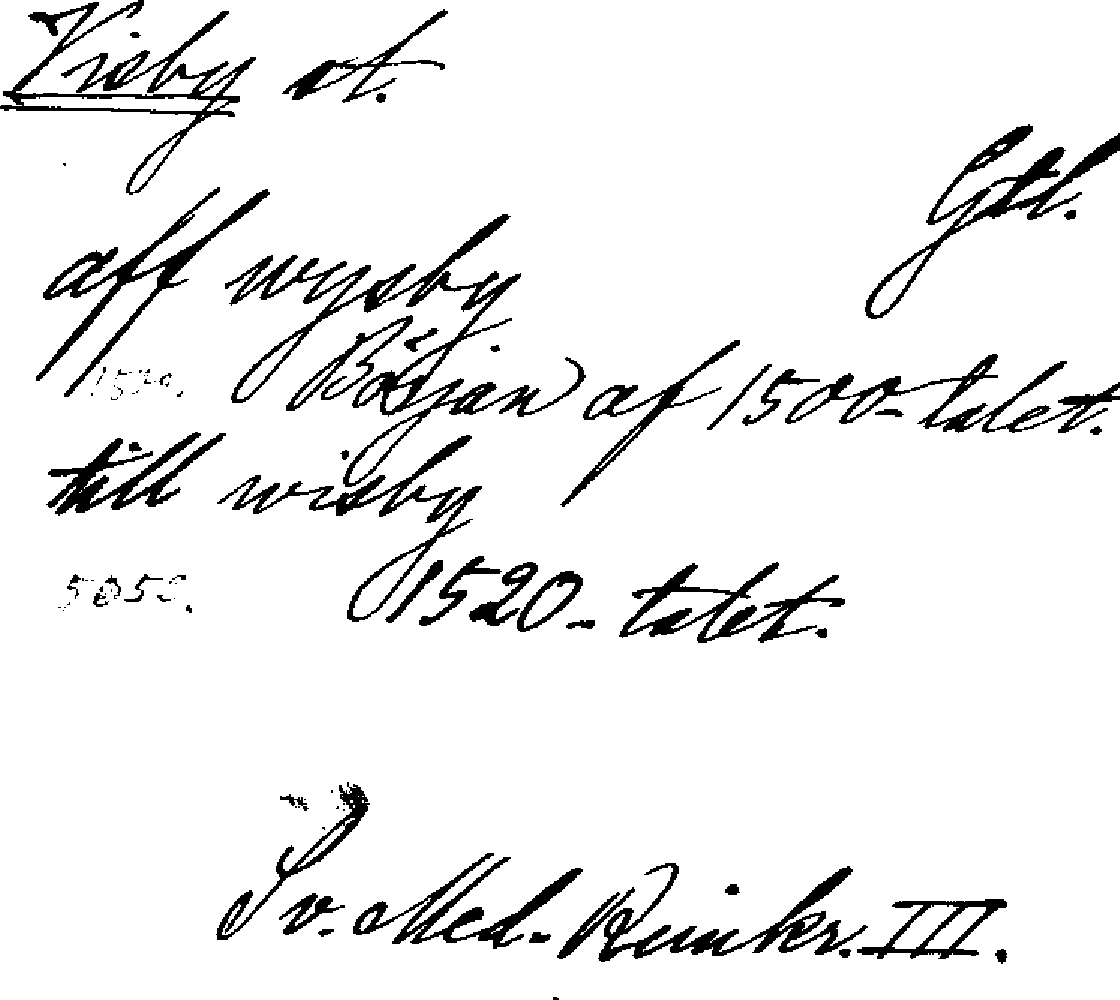 Visby st.
Gtl.
aff wysby
Början af 1500-talet.
till wisby
5050.
1520-talet.
Sv. Med. Rimkr. III.